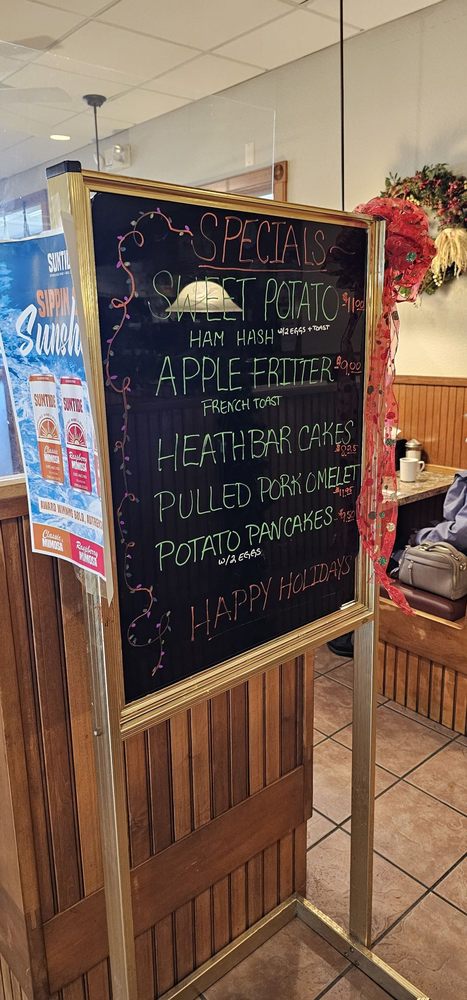 SPECIALS
SWEET POTATO $11.00
HAM HASH W/2 EGGS + TOAST
APPLE FRITTER $9.00
FRENCH TOAST
HEATHBAR CAKES
PULLED PORK OMELET
$11.95
POTATO PANCAKES $9.50
W/2 EGGS
HAPPY HOLIDAYS
SUNTIDE
SIPPIN
SUNTIDE
SUNTIDE
Classic
MIMOSA
Raspberry
MIMOSA
Classic
MIMOSA
Raspberry
MIMOSA